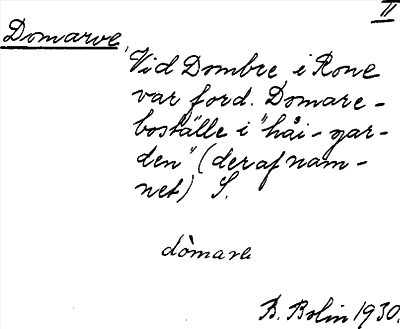 II
Domarve,
Vid Dombre i Rone
var ford. Domare-
boställe i "håi-gar-
den" (deraf nam-
net) S.
dòmarε
B. Bolin 1930.